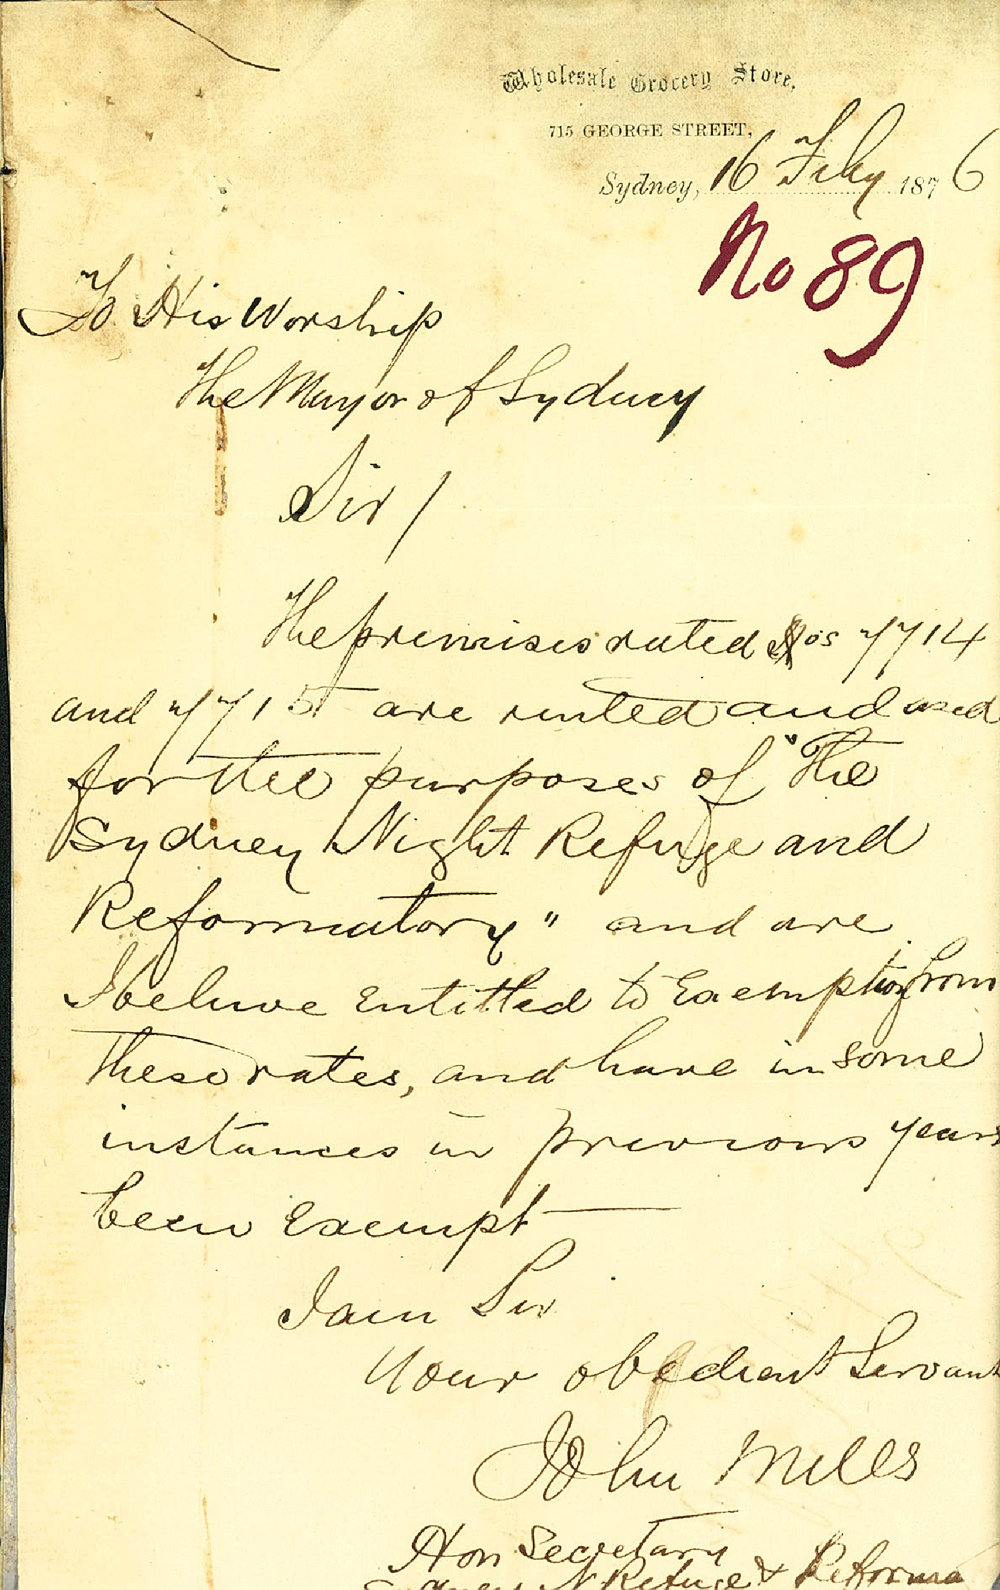 Wholesale Grocery Store,
715 GEORGE STREET,
Sydney, 16 Feby 1876
No 89
To His Worship
The Mayor of Sydney
Sir/
The premises rated Nos 7714
and 7715 are rented and used
for the purposes of "The
Sydney Night Refuge and
Reformatory" and are
I believe entitled to Exemption from
these rates, and have in some
instances in previous years
been Exempt —
I am Sir
Your obedient Servant
John Mills
Hon Secretary
Sydney N Refuge & Reforma